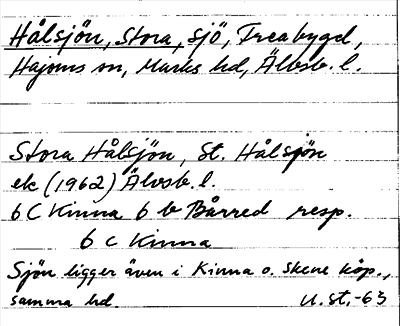 Hålsjön, Stora, sjö, Freabygd,
Hajoms sn, Marks hd, Älvsb. l.
Stora Hålsjön, St. Hålsjön
ek (1962) Älvsb. l.
6 C Kinna 6 b Bårred resp.
6 c Kinna
Sjön ligger även i Kinna o. Skene köp.,
samma hd. U. st, -63